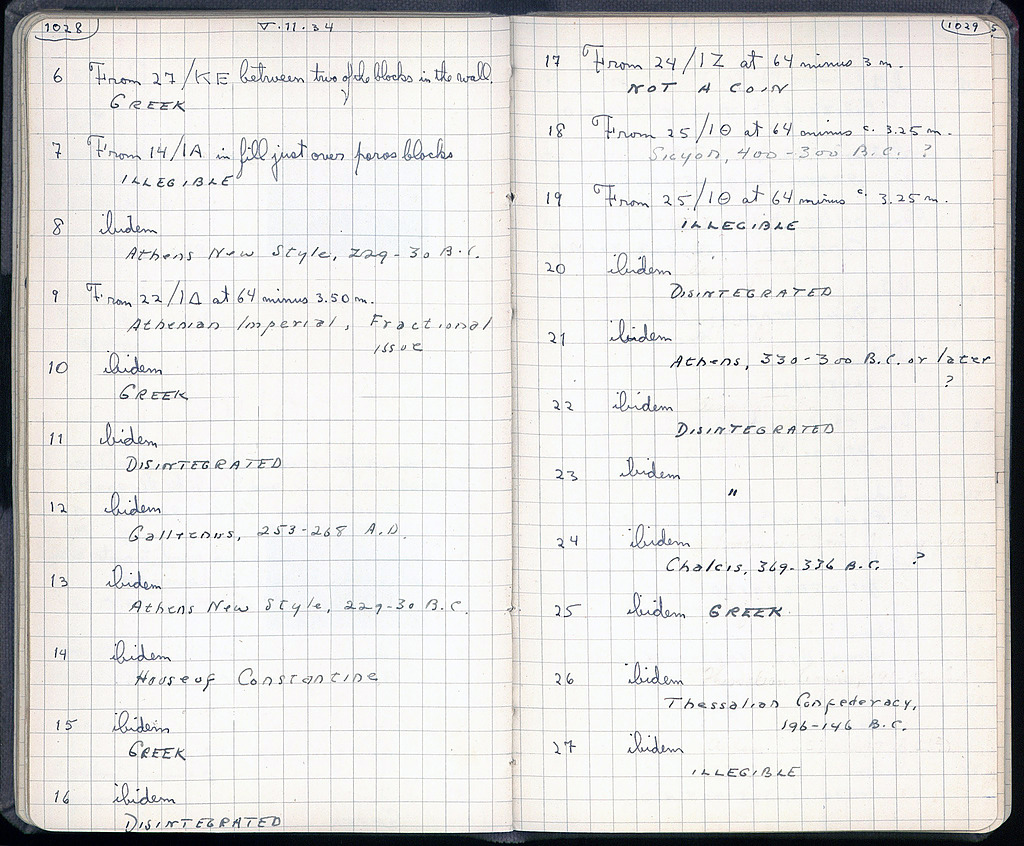 1028
V.11.34
6 From 27/KE between two of the blocks in the wall.
GREEK
7 From 14/IA in fill just over poros blocks
ILLEGIBLE
8 ibidem
Athens New Style, 229-30 B.C.
9 From 22/IΔ at 64 minus 3.50 m.
Athenian Imperial, Fractional
issue
10 ibidem
GREEK
11 ibidem
DISINTEGRATED
12 ibidem
Gallienus, 253-268 A.D.
13 ibidem
Athens New Style, 229-30 B.C.
14 ibidem
House of Constantine
15 ibidem
GREEK
16 ibidem
DISINTEGRATED
1029
17 From 24/IZ at 64 minus 3 m.
NOT A COIN
18 From 25/IΘ at 64 minus c. 3.25 m.
Sicyon, 400-300 B.C. ?
19 From 25/IΘ at 64 minus c. 3.25 m.
ILLEGIBLE
20 ibidem
DISINTEGRATED
21 ibidem
Athens, 330-300 B.C. or later
?
22 ibidem
DISINTEGRATED
23 ibidem
"
24 ibidem
Chalcis, 369-336 B.C. ?
25 ibidem GREEK
26 ibidem
Thessalian Confederacy,
196-146 B.C.
27 ibidem
ILLEGIBLE